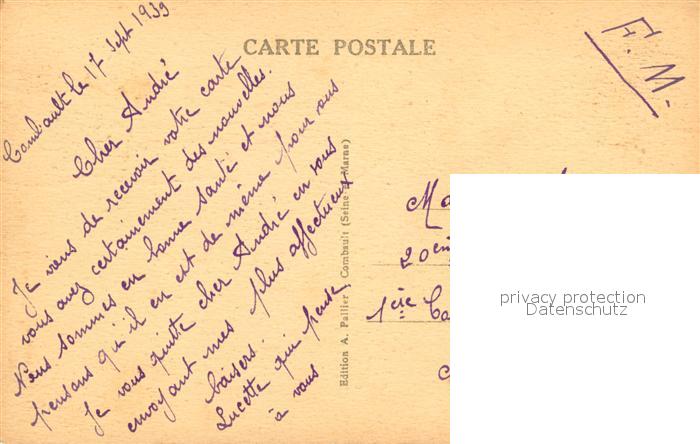 CARTE POSTALE
F. M.
Combault le 17 Sept 1939
Cher André
Je viens de recevoir votre carte
vous avez certainement des nouvelles.
Nous sommes en bonne santé et nous
pensons qu'il en est de même pour vous
Je vous quitte cher André en vous
envoyant mes plus affectueux
baisers.
Lucette qui pense
à vous
Edition A. Pallier, Combault (Seine-&-Marne)
20em
1ère
privacy protection
Datenschutz